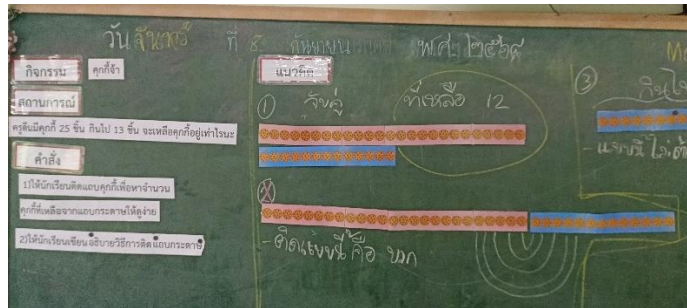 วันจันทร์ ที่ 8 กันยายน พ.ศ. ๒๕๖๘
กิจกรรม คุกกี้จ๋า
สถานการณ์
ครูดิ้บมีคุกกี้ 25 ชิ้น กินไป 13 ชิ้น จะเหลือคุกกี้อยู่เท่าไรนะ
คำสั่ง
1)ให้นักเรียนติดแถบคุกกี้เพื่อหาจำนวน
คุกกี้ที่เหลือจากแถบกระดาษให้ดูง่าย
2)ให้นักเรียนเขียนอธิบายวิธีการติดแถบกระดาษ
แนวคิด
① จับคู่ ที่เหลือ 12
②
- ติดแบบนี้ คือ บวก
③ กินไป
- แบบนี้